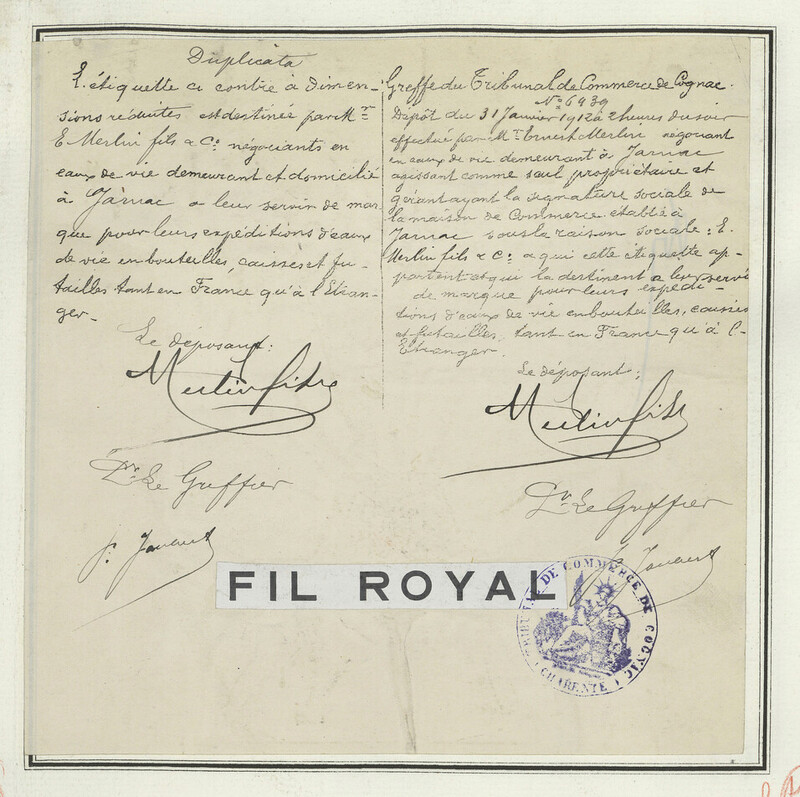 Duplicata
L'étiquette ci contre à dimen-
sions réduites est destinée par Mr
E. Merlin fils & Co négociants en
eaux de vie demeurant et domicilié
à Jarnac a leur servir de mar
que pour leurs expéditions d'eaux
de vie en bouteilles, caisses et fu-
tailles tant en France qu'à l'Etran-
ger.
Le déposant:
Merlin fils
Pr Le Greffier
Greffe du Tribunal de Commerce de Cognac.
No 6939
Dépôt du 31 Janvier 1912 à 2 heures du soir
effectué par Mr Ernest Merlin négociant
en eaux de vie demeurant à Jarnac
agissant comme seul propriétaire et
gérant ayant la signature sociale de
la maison de Commerce établie à
Jarnac sous la raison sociale: E.
Merlin fils & Co a qui cette étiquette ap-
partient et qui la destinent a leur servir
de marque pour leurs expédi-
tions d'eaux de vie en bouteilles, caisses
et futailles, tant en France qu'à l'-
Etranger.
Le déposant;
Merlin fils
Pr Le Greffier
FIL ROYAL
TRIBUNAL DE COMMERCE DE COGNAC
(CHARENTE)